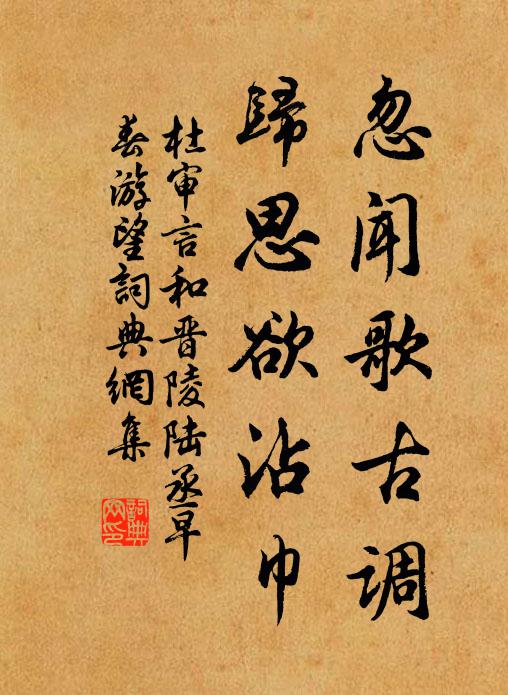 忽闻歌古调
歸思欲沾巾
杜审言和晋陵陆丞早
春游望詞典網集
詞典
网印